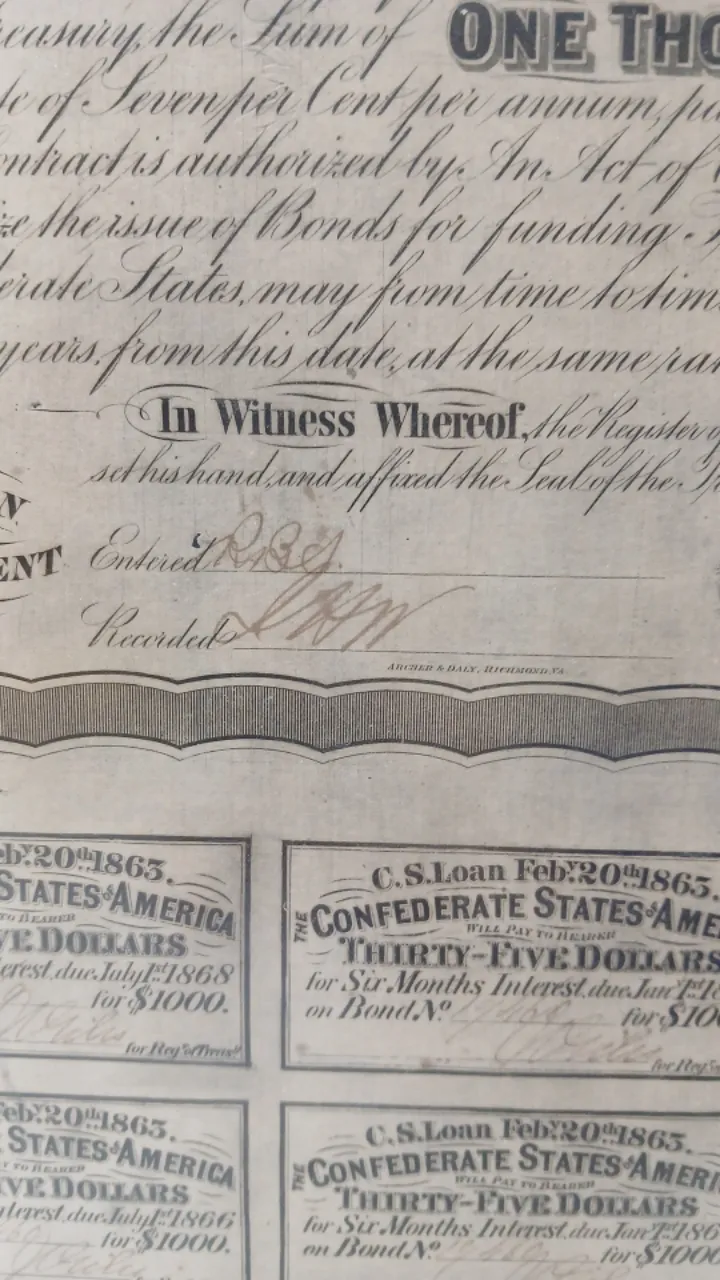 reasury, the Sum of ONE THO
te of Seven per Cent per annum, pa
ontract is authorized by An Act of
ze the issue of Bonds for funding
erate States, may from time to tim
years, from this date, at the same ra
In Witness Whereof, the Register o
set his hand, and affixed the Seal of the Tr
N
ENT
Entered
Recorded
ARCHER & DALY, RICHMOND, VA.
eby. 20th 1863.
STATES OF AMERICA
TO BEARER
VE DOLLARS
erest, due July 1st 1868
for $1000.
for Regr of Treasy
C.S. Loan Feby. 20th 1863.
THE CONFEDERATE STATES OF AME
WILL PAY TO BEARER
THIRTY-FIVE DOLLARS
for Six Months Interest, due Jany 1st 18
on Bond No. for $100
for Regr
eby. 20th 1863.
STATES OF AMERICA
Y TO BEARER
VE DOLLARS
nterest, due July 1st 1866
for $1000.
C.S. Loan Feby. 20th 1863.
THE CONFEDERATE STATES OF AMERI
WILL PAY TO BEARER
THIRTY-FIVE DOLLARS
for Six Months Interest, due Jany 1st 186
on Bond No. for $1000